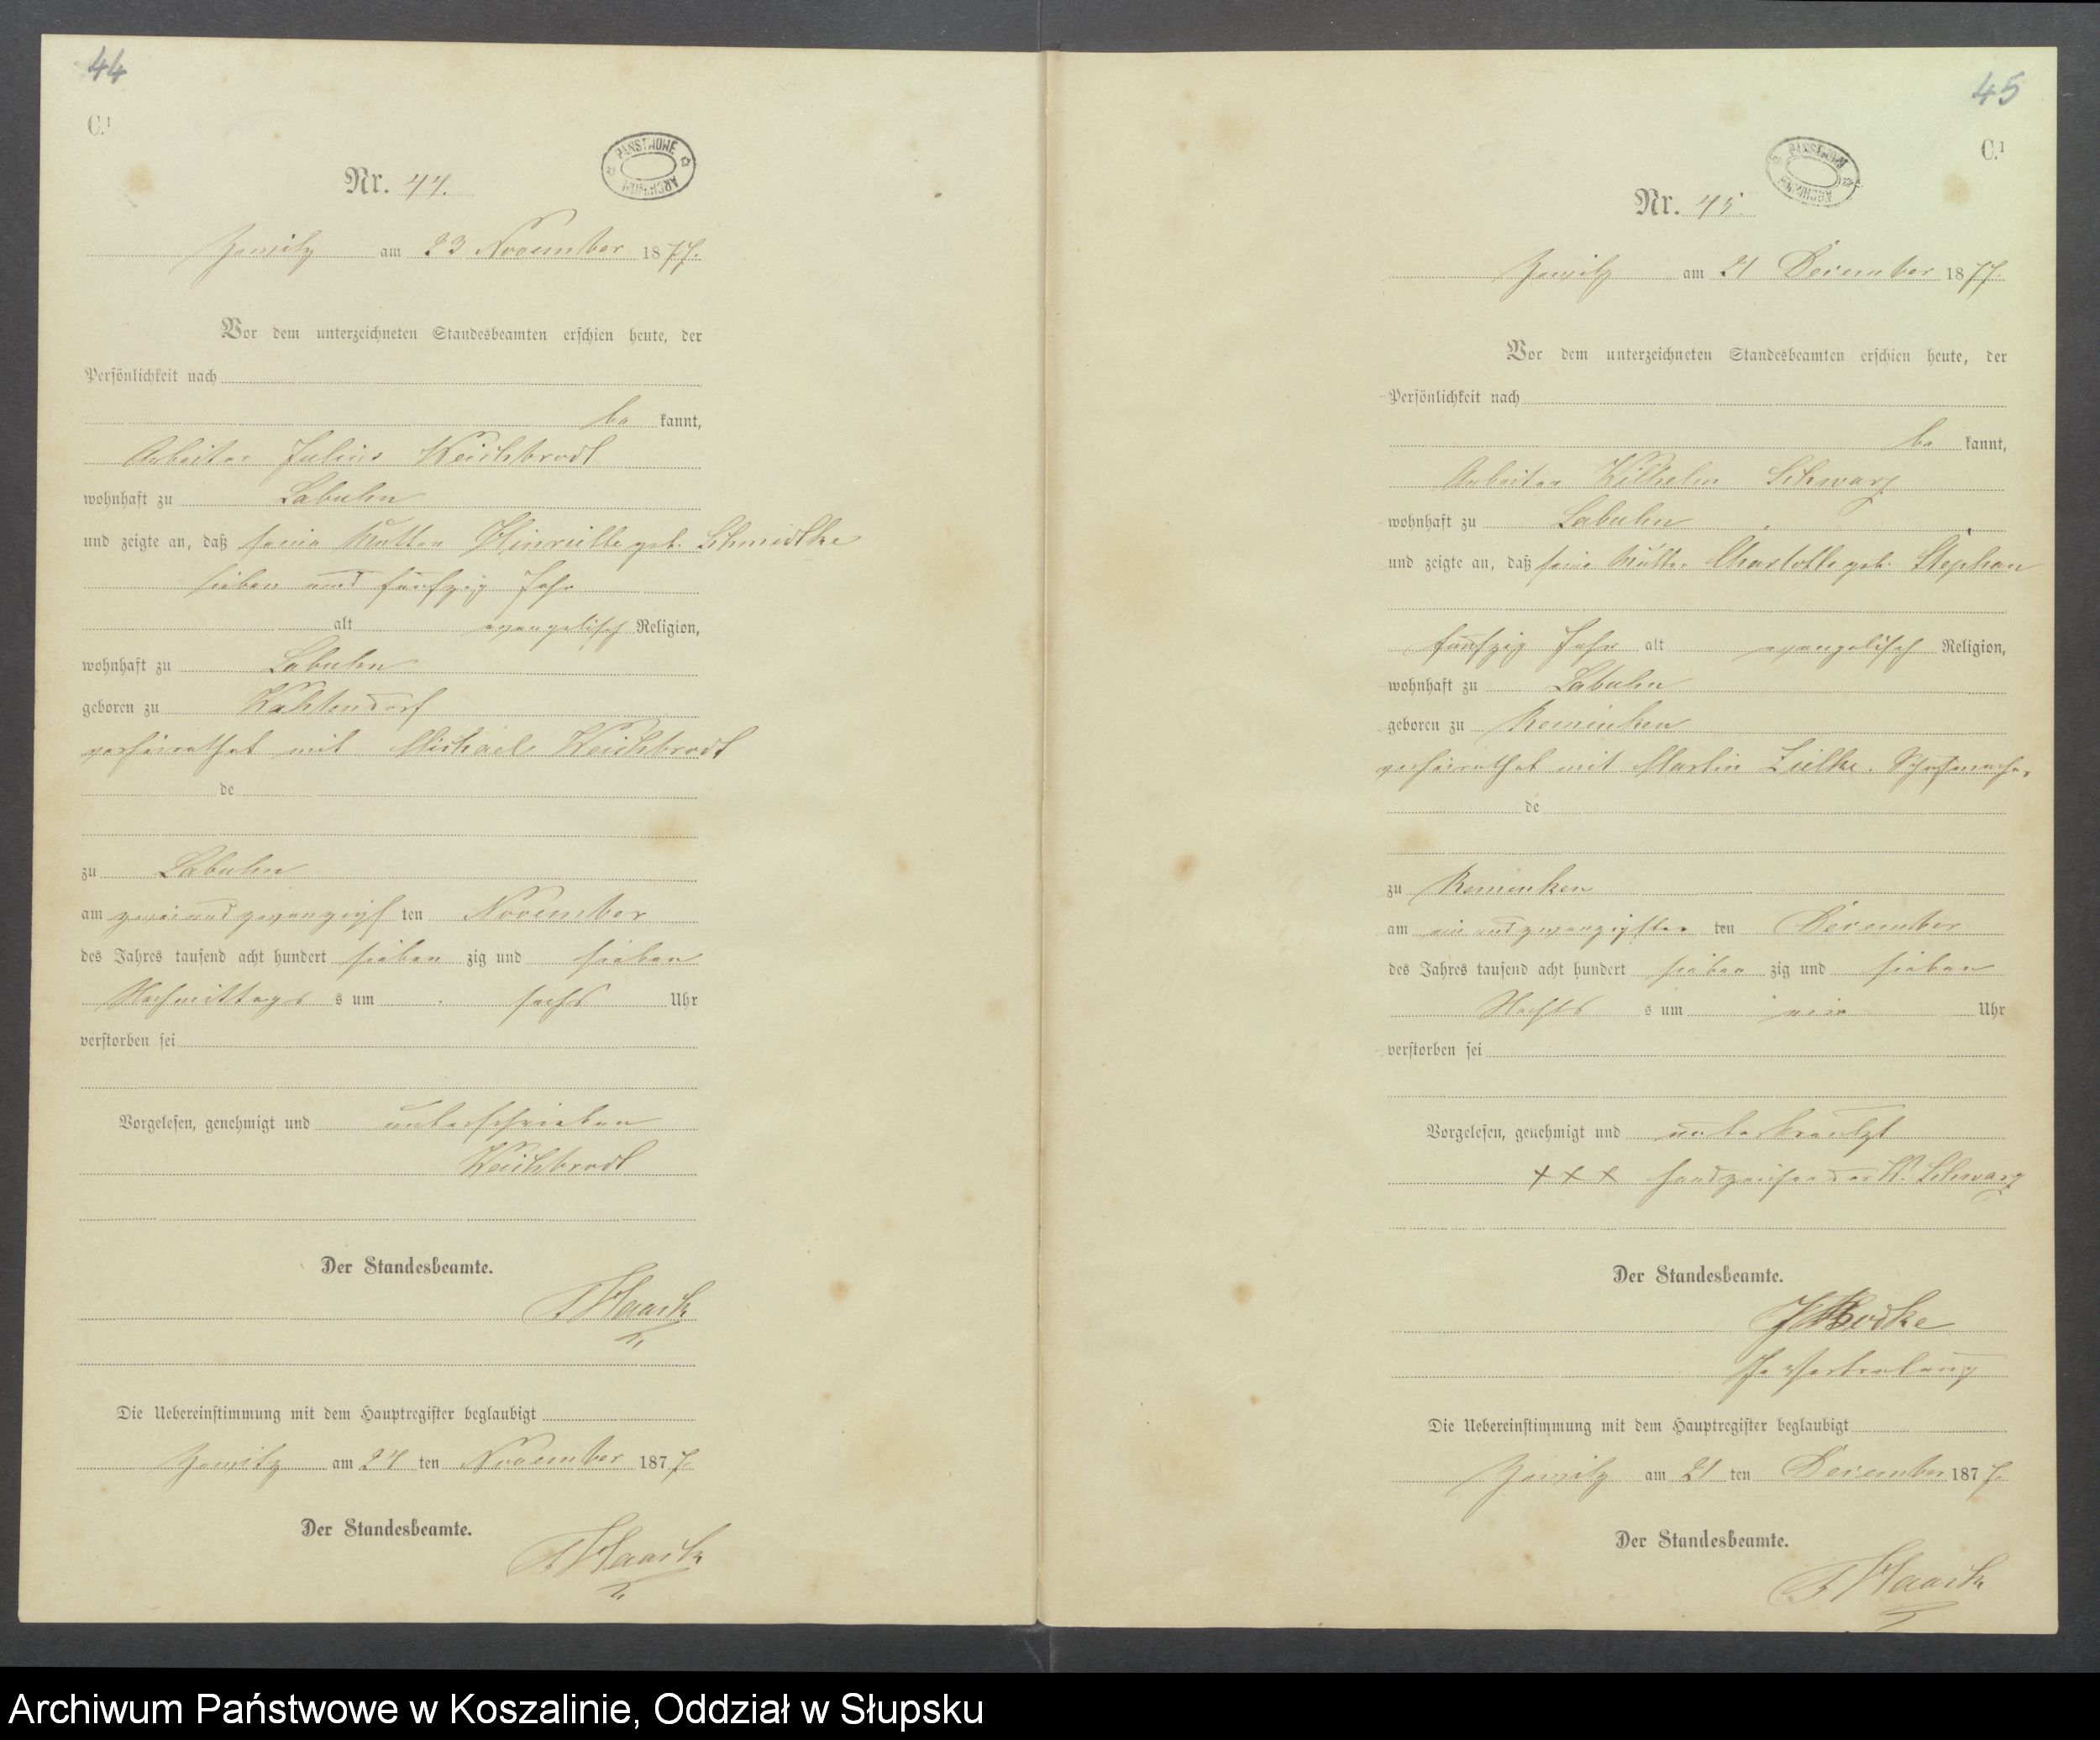 44
C.1
PAŃSTWOWE ARCHIWUM
Nr. 44.
Zewitz am 23 November 1877.
Vor dem unterzeichneten Standesbeamten erschien heute, der
Persönlichkeit nach
be kannt,
Arbeiter Julius Weichbrodt
wohnhaft zu Labuhn
und zeigte an, daß seine Mutter Hinriette geb. Schmidtke
sieben und funfzig Jahr
alt evangelisch Religion,
wohnhaft zu Labuhn
geboren zu
verheirathet mit Michael Weichbrodt
de
zu Labuhn
am zweiundzwanzigst ten November
des Jahres tausend acht hundert sieben zig und sieben
Nachmittags s um sechs Uhr
verstorben sei
Vorgelesen, genehmigt und unterschrieben
Weichbrodt
Der Standesbeamte.
Haack
Die Uebereinstimmung mit dem Hauptregister beglaubigt
Zewitz am 24 ten November 187 7.
Der Standesbeamte.
Haack
45
C.1
PAŃSTWOWE ARCHIWUM
Nr. 45.
Zewitz am 21 December 1877.
Vor dem unterzeichneten Standesbeamten erschien heute, der
Persönlichkeit nach
be kannt,
Arbeiter Wilhelm Schwarz
wohnhaft zu Labuhn
und zeigte an, daß seine Mutter Charlotte geb. Stephan
funfzig Jahr alt evangelisch Religion,
wohnhaft zu Labuhn
geboren zu
verheirathet mit Martin Zielke.
de
zu
am einundzwanzigsten ten December
des Jahres tausend acht hundert sieben zig und sieben
Nachts s um ein Uhr
verstorben sei
Vorgelesen, genehmigt und unterkreutzt
+ + + Handzeichen des W. Schwarz
Der Standesbeamte.
In Vertretung
Die Uebereinstimmung mit dem Hauptregister beglaubigt
Zewitz am 21 ten December 187 7.
Der Standesbeamte.
Haack
Archiwum Państwowe w Koszalinie, Oddział w Słupsku